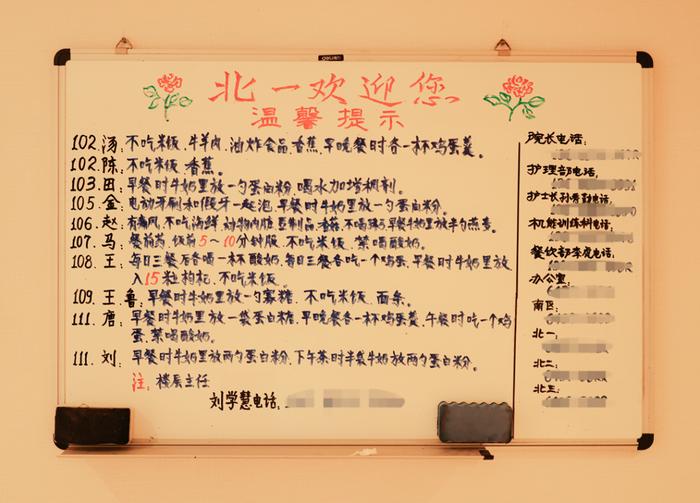 deli
北一欢迎您
温馨提示
102.汤:不吃米饭.牛羊肉.油炸食品.香蕉.早晚餐时各一杯鸡蛋羹。
102.陈:不吃米饭.香蕉。
103.田:早餐时牛奶里放一勺蛋白粉.喝水加增稠剂。
105.金:电动牙刷和假牙一起泡.早餐时牛奶里放一勺蛋白粉.
106.赵:有痛风.不吃海鲜.动物内脏.豆制品.香菇.不喝豌.早餐牛奶里放半勺燕麦。
107.马:餐前药.饭前5~10分钟服.不吃米饭.禁喝酸奶.
108.王:每日三餐后各喝一杯酸奶.每日三餐各吃一个鸡蛋.早餐时牛奶里放
入15粒枸杞.不吃米饭.
109.王鲁:早餐时牛奶里放一勺寡糖.不吃米饭.面条.
111.唐:早餐时牛奶里放一袋蛋白糖.早晚餐各一杯鸡蛋羹.午餐时吃一个鸡
蛋.禁喝酸奶.
111.刘:早餐时牛奶里放两勺蛋白粉.下午茶时半袋牛奶放两勺蛋白粉。
注:楼层主任
刘学慧电话:
院长电话:
护理部电话:
护士长孙秀勤电话:
机能训练科电话:
餐饮部李虎电话:
办公室:
南区:
北一:
北二:
北三: